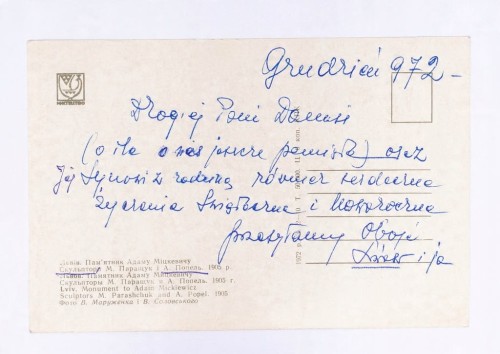 Grudzień 972 –
Drogiej Pani Danusi
(o ile o nas jeszcze pamięta) oraz
Jej Synowi z rodziną również serdeczne
życzenia Świąteczne i Noworoczne
przesyłamy Oboje
i ja
Львів. Пам'ятник Адаму Міцкевичу
Скульптори М. Паращук і А. Попель. 1905 р.
Львов. Памятник Адаму Мицкевичу
Скульпторы М. Паращук и А. Попель. 1905 г.
Lviv. Monument to Adam Mickiewicz
Sculptors M. Parashchuk and A. Popel. 1905
Фото В. Маруженка і В. Соловського